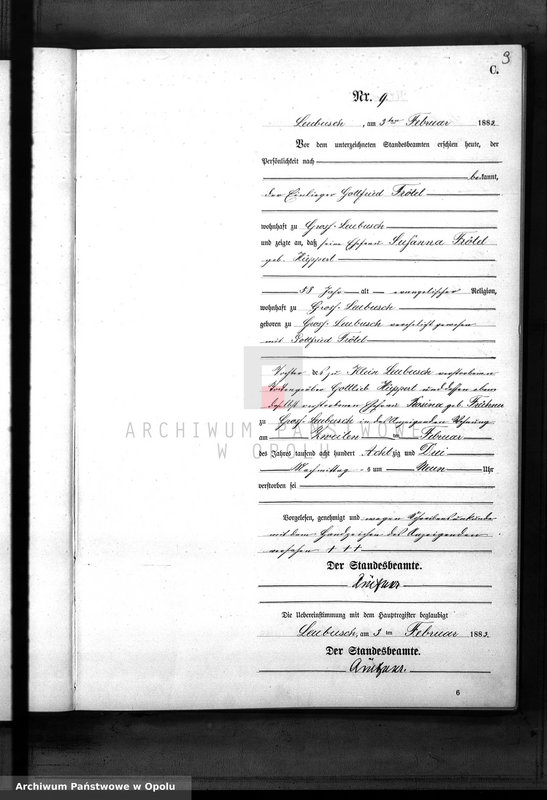 3
C.
Nr. 9
Leubusch, am 3ten Februar 1883
Vor dem unterzeichneten Standesbeamten erschien heute, der
Persönlichkeit nach
bekannt,
der Einlieger Gottfried Frötel
wohnhaft zu Groß-Leubusch
und zeigte an, daß seine Ehefrau Susanna Frötel
geb. Hippert
58 Jahr alt evangelischer Religion,
wohnhaft zu Groß-Leubusch
geboren zu Groß-Leubusch verehelicht gewesen
mit Gottfried Frötel
Tochter des zu Klein Leubusch verstorbenen
Gottlieb Hippert und dessen eben
daselbst verstorbenen Ehefrau Rosina geb.
zu Groß-Leubusch in des Anzeigenden Wohnung
am Zweiten ten Februar
des Jahres tausend acht hundert Achtzig und Drei
Nachmittags um Neun Uhr
verstorben sei
Vorgelesen, genehmigt und wegen Schreibensunkunde
mit dem Handzeichen des Anzeigenden
versehen + + +
Der Standesbeamte.
Die Uebereinstimmung mit dem Hauptregister beglaubigt
Leubusch, am 3 ten Februar 1883.
Der Standesbeamte.
6
ARCHIWUM PAŃSTWOWE
W OPOLU
Archiwum Państwowe w Opolu